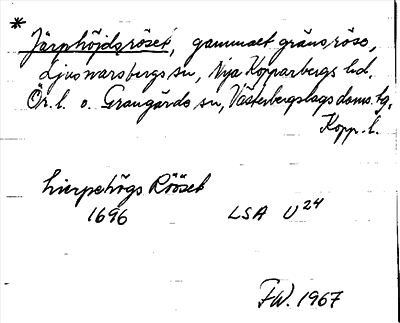 *
Järphöjdsröset, gammalt gränsröse,
Ljusnarsbergs sn, Nya Kopparbergs hd.
Ör. l. o. Grangärde sn, Västerbergslags doms.tg,
Kopp. l.
hierpehögs Rööset
1696 LSA U24
FW. 1967